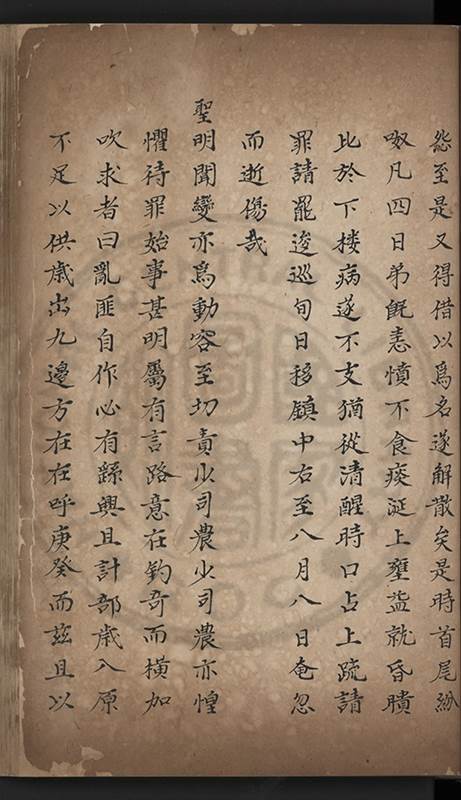 怨至是又得借以爲名遂解散矣是時首尾紛
呶凡四日弟既恚憤不食痰涎上壅益就昏瞶
比於下摟病遂不支猶從清醒時口占上疏請
罪請罷逡巡旬日移鎮中右至八月八日奄忽
而逝傷哉
聖明聞變亦爲動容至切責少司農少司農亦惶
懼待罪始事甚明屬有言路意在鈎奇而横加
吹求者曰亂匪自作必有繇興且計部歲入原
不足以供歲出九邊方在在呼庚癸而茲且以